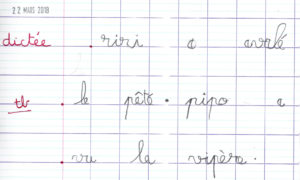 22 MARS 2018
dictée . riri a avalé
tb . le pêtô . pipo a
. vu la vipère .